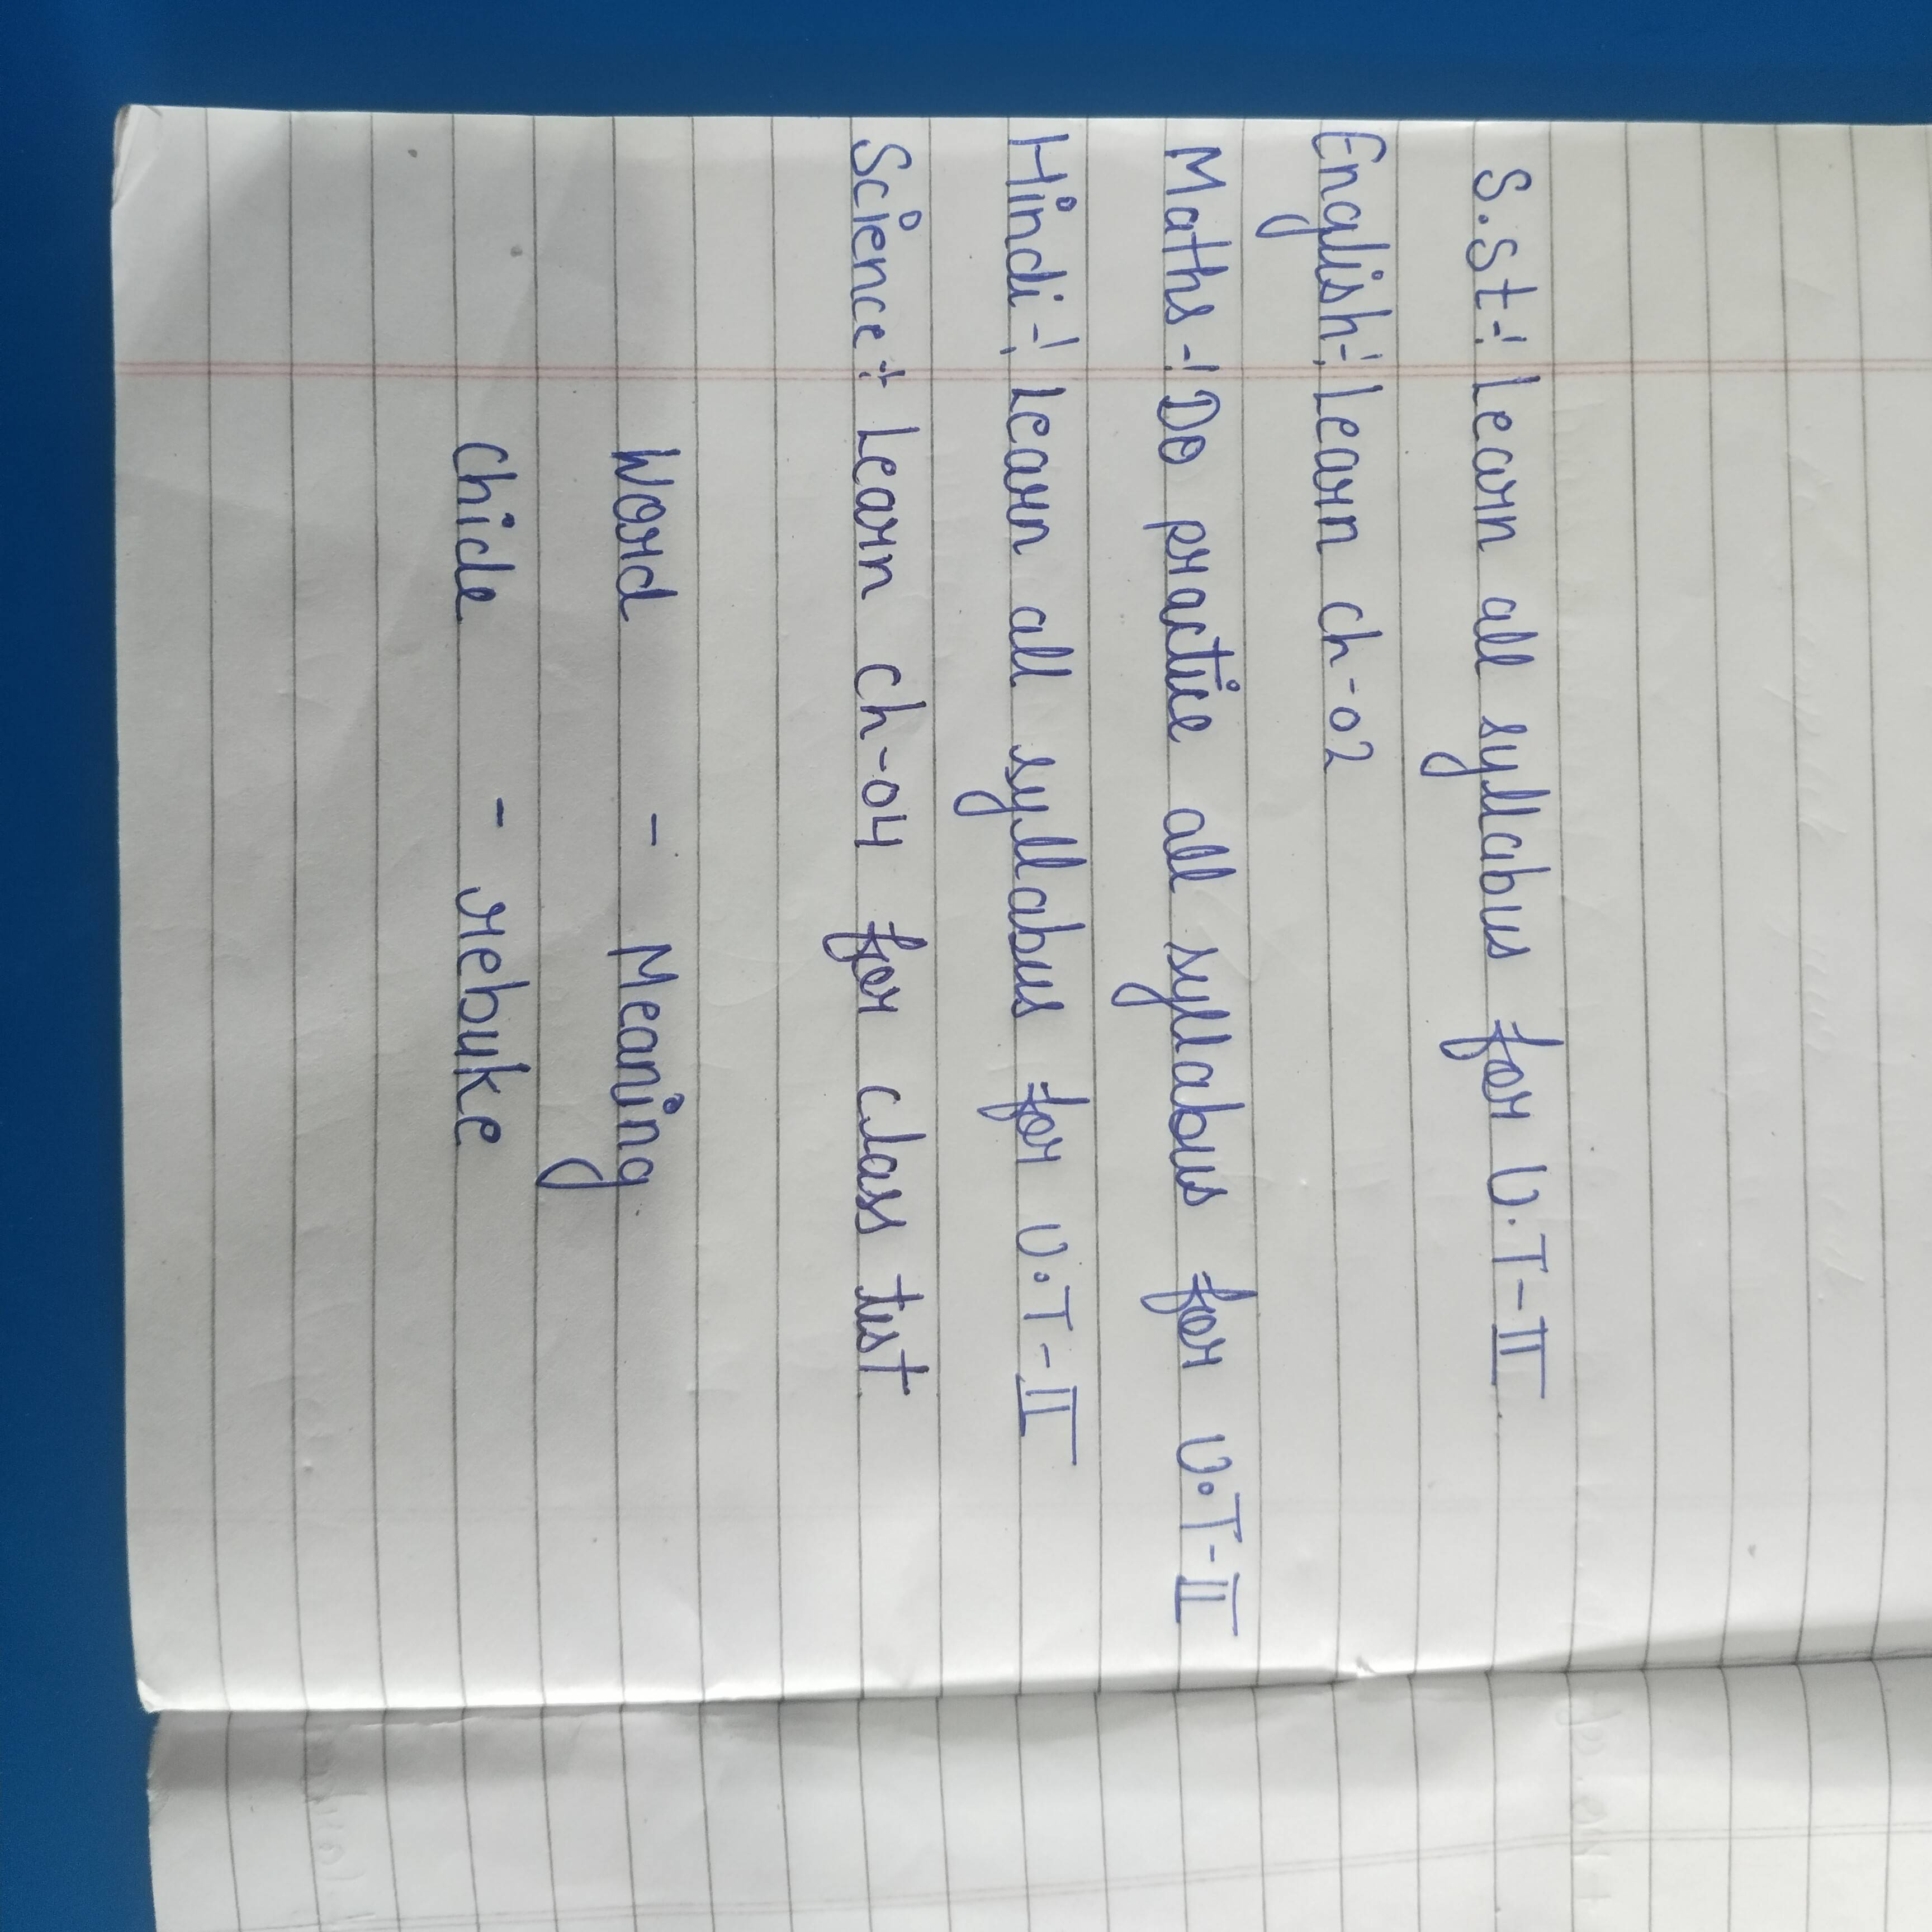 S.St-: Learn all syllabus for U.T-II
English-: Learn ch-02
Maths-: Do practice all syllabus for U.T-II
Hindi-: Learn all syllabus for U.T-II
Science-: Learn ch-04 for class test
Word - Meaning
Chide - rebuke